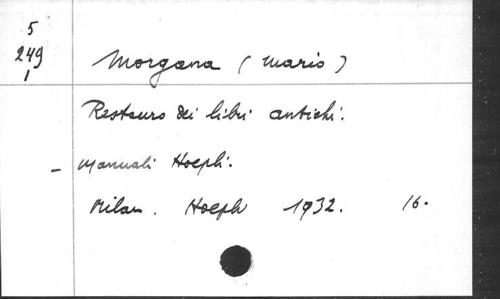 5
249
1
Morgana (Mario)
Restauro dei libri antichi.
- Manuali Hoepli.
Milan. Hoepli 1932. 16.